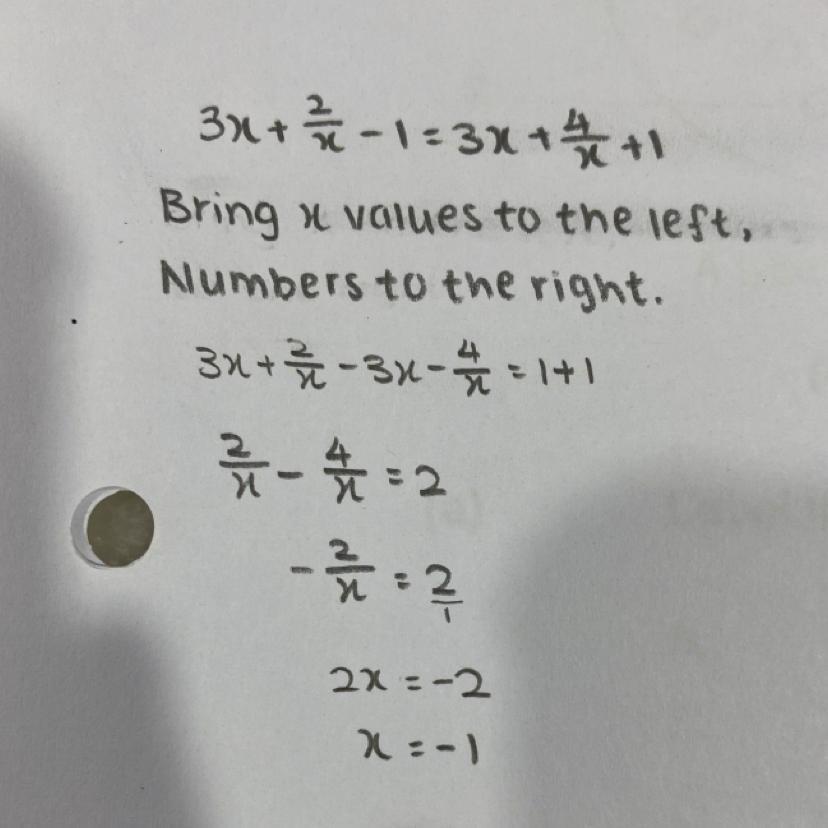 3x + 2/x - 1 = 3x + 4/x + 1
Bring x values to the left,
Numbers to the right.
3x + 2/x - 3x - 4/x = 1 + 1
2/x - 4/x = 2
- 2/x = 2/1
2x = -2
x = -1